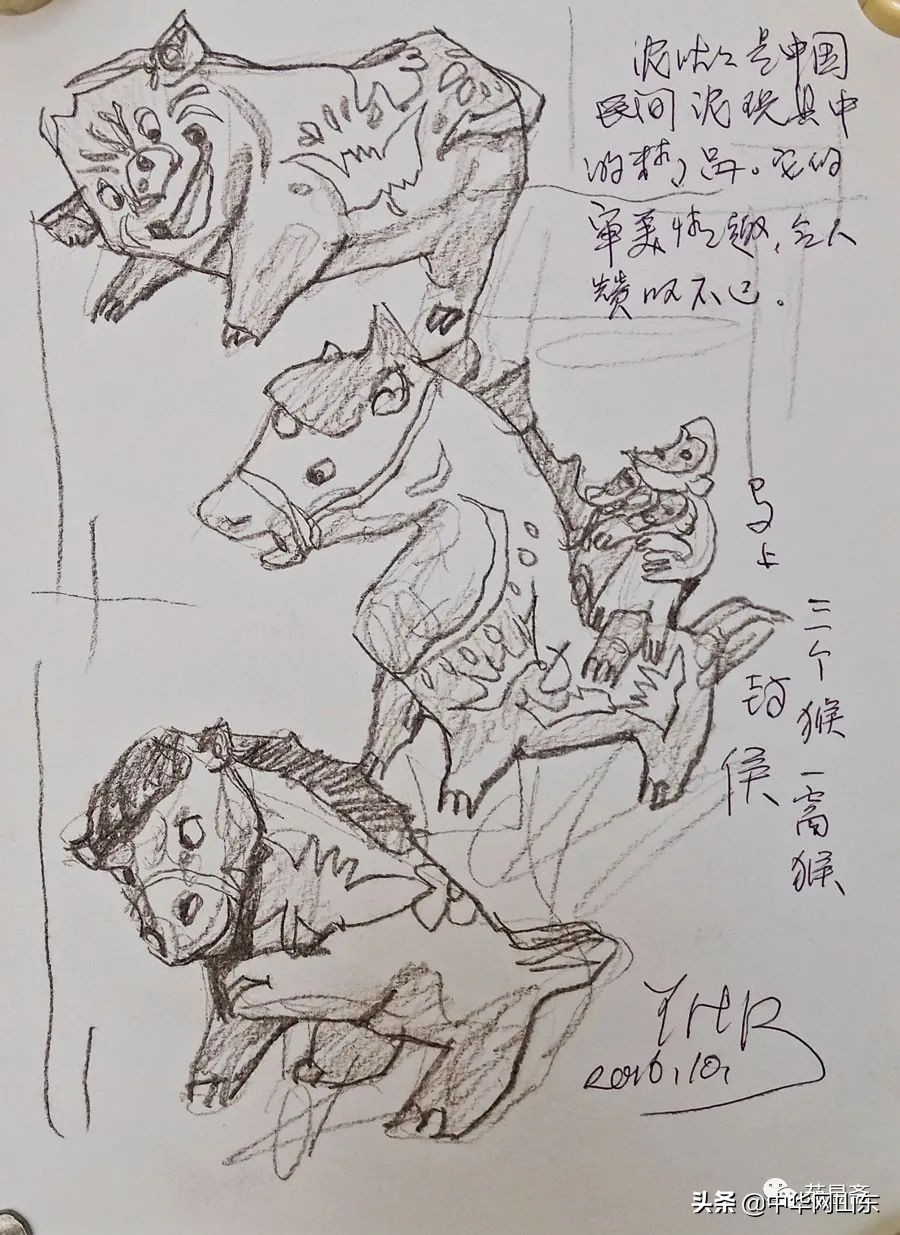 泥咕咕是中国
民间泥玩具中
的精品。它的
审美情趣，令人
赞叹不已。
马上
封
侯
三个猴一窝猴
2016.10.
头条 @中华网山东